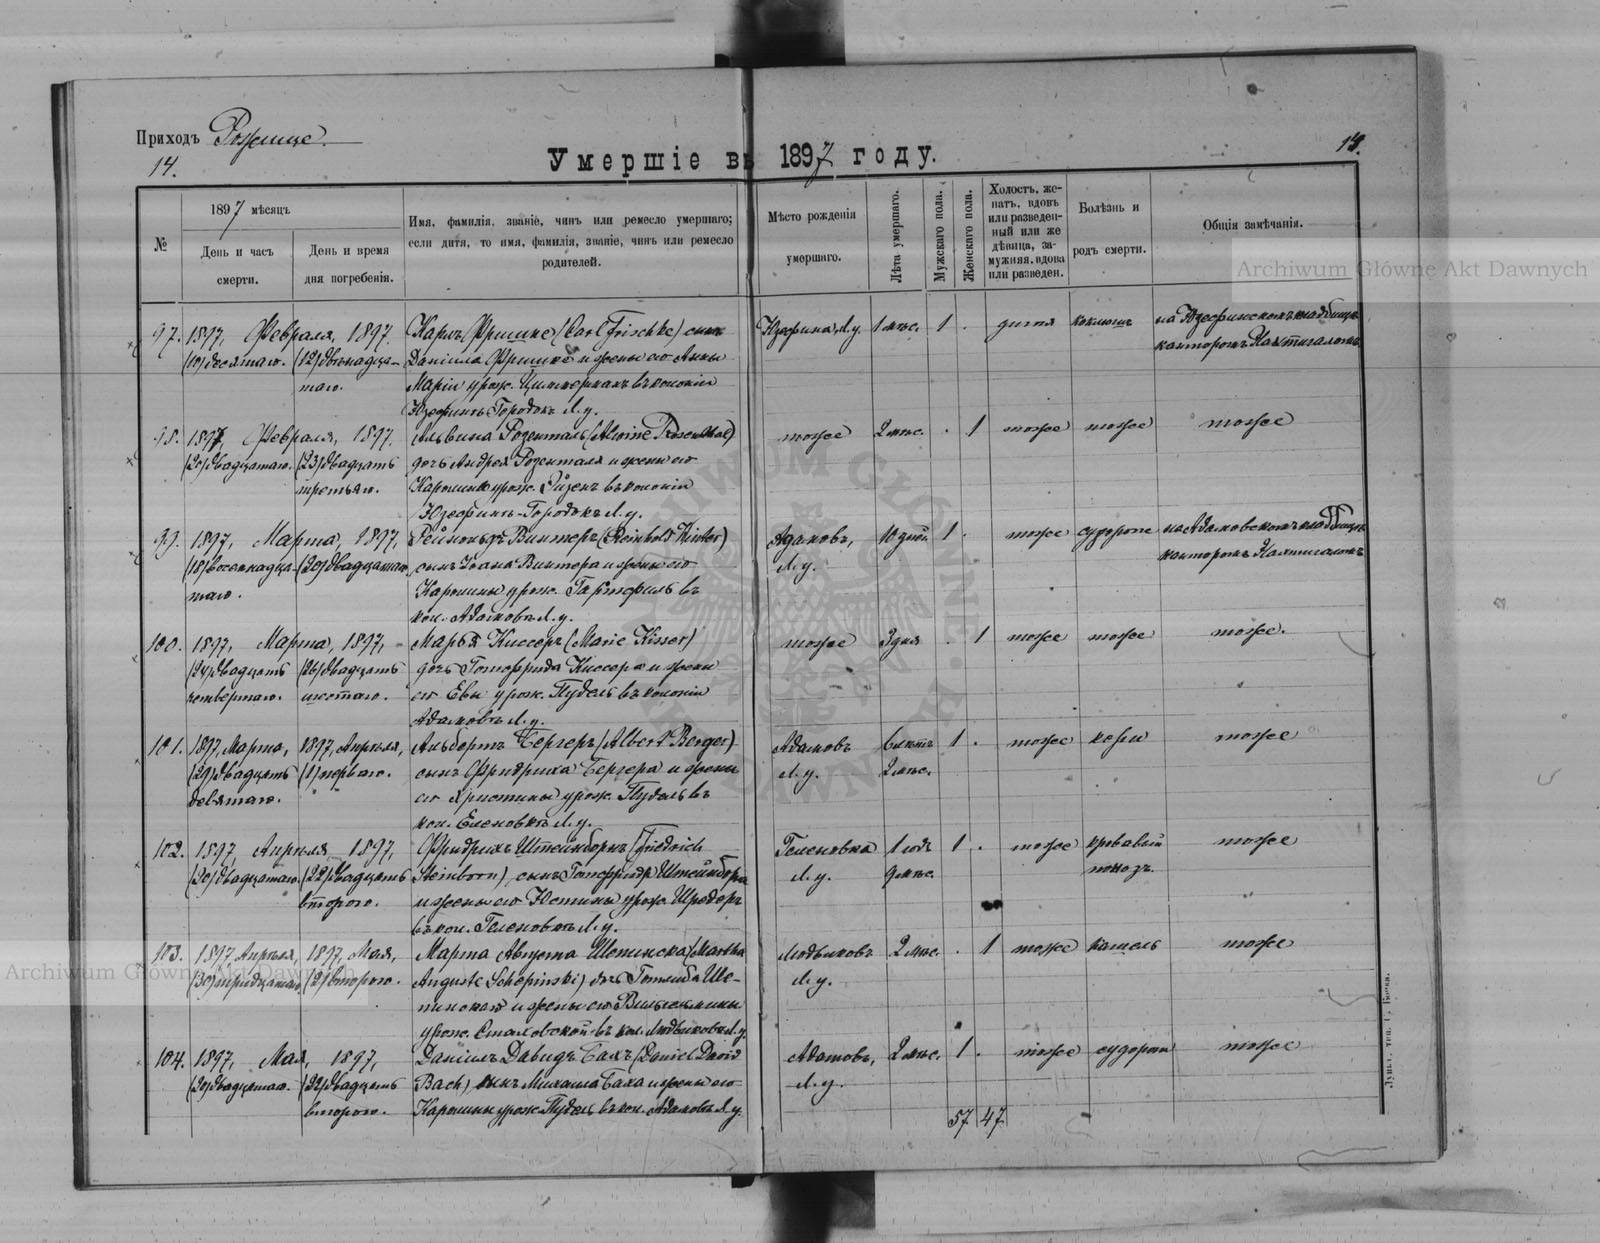 Приходъ Рожище.
14.
Умершіе въ 1897 году.
14.
№
1897 мѣсяцъ
День и часъ смерти.
День и время дня погребенія.
Имя, фамилія, званіе, чинъ или ремесло умершаго;
если дитя, то имя, фамилія, званіе, чинъ или ремесло
родителей.
Мѣсто рожденія
умершаго.
Лѣта умершаго.
Мужскаго пола.
Женскаго пола.
Холостъ, же-
натъ, вдовъ
или разведен-
ный или же
дѣвица, за-
мужняя, вдова
или разведен.
Болѣзнь и
родъ смерти.
Общія замѣчанія.
97. 1897, Февраля, 1897. Карлъ Фришке (Carl Frischke) сынъ Юзефинъ, Л. у. 1 мѣс. 1 . дитя коклюшъ на Юзефинскомъ кладбищѣ
(10) десятаго. (12) двѣнадца- Даніила Фришке и жены его Анны канторомъ Нахтигаломъ
таго. Маріи урож. Циммерманъ въ колоніи
Юзефинъ Городокъ Л. у.
98. 1897, Февраля, 1897. Альвина Розенталь (Alwine Rosenthal) тоже 2 мѣс. . 1 тоже тоже тоже
(20) двадцатаго. (23) двадцать дочь Андрея Розенталя и жены его
третьяго. Каролины урож. въ колоніи
Юзефинъ-Городокъ Л. у.
99. 1897, Марта, 1897, Рейнольдъ Винтеръ (Reinhold Winter) Адамовъ, 10 дней 1 . тоже судороги на Адамовскомъ кладбищѣ
(18) восемнадца- (20) двадцатаго сынъ Винтера и жены его Л. у. канторомъ Нахтигаломъ
таго. Каролины урож. въ
кол. Адамовъ Л. у.
100. 1897, Марта, 1897, Марья Киссеръ (Marie Kisser) тоже 3 дня . 1 тоже тоже тоже.
(24) двадцать (26) двадцать дочь Готфрида Киссера и жены
четвертаго. шестаго. его Евы урож. Пудель въ колоніи
Адамовъ Л. у.
101. 1897, Марта, 1897, Апрѣля, Альбертъ Бергеръ (Albert Berger) Адамовъ 1 . тоже тоже
(29) двадцать (1) перваго. сынъ Фридриха Бергера и жены Л. у. 2 мѣс.
девятаго. его Христины урож. Пудель въ
кол. Еленовкѣ Л. у.
102. 1897, Апрѣля, 1897, Фридрихъ Штейнборнъ (Friedrich Геленовка 1 годъ 1 . тоже кровавый тоже
(20) двадцатаго. (22) двадцать Steinborn) сынъ Готфрида Штейнборна Л. у. 9 мѣс. поносъ.
втораго. и жены его Юстины урож. Шредеръ
въ кол. Геленовкѣ Л. у.
103. 1897, Апрѣля, 1897, Мая, Марта Августа Шепинска (Martha Людвиковъ 2 мѣс. . 1 тоже кашель тоже
(30) тридцатаго (2) втораго. Auguste Schepinski) дочь Готлиба Ше- Л. у.
пинскаго и жены его Вильгельмины
урож. въ кол. Людвиковъ Л. у.
104. 1897, Мая, 1897, Даніилъ Давидъ Бахъ (Daniel David Адамовъ, 2 мѣс. 1 . тоже судороги тоже
(20) двадцатаго. (22) двадцать Bach) сынъ Михаила Баха и жены его Л. у.
втораго. Каролины урож. Пудель въ кол. Адамовъ Л. у.
57 47
Archiwum Główne Akt Dawnych
Archiwum Główne Akt Dawnych